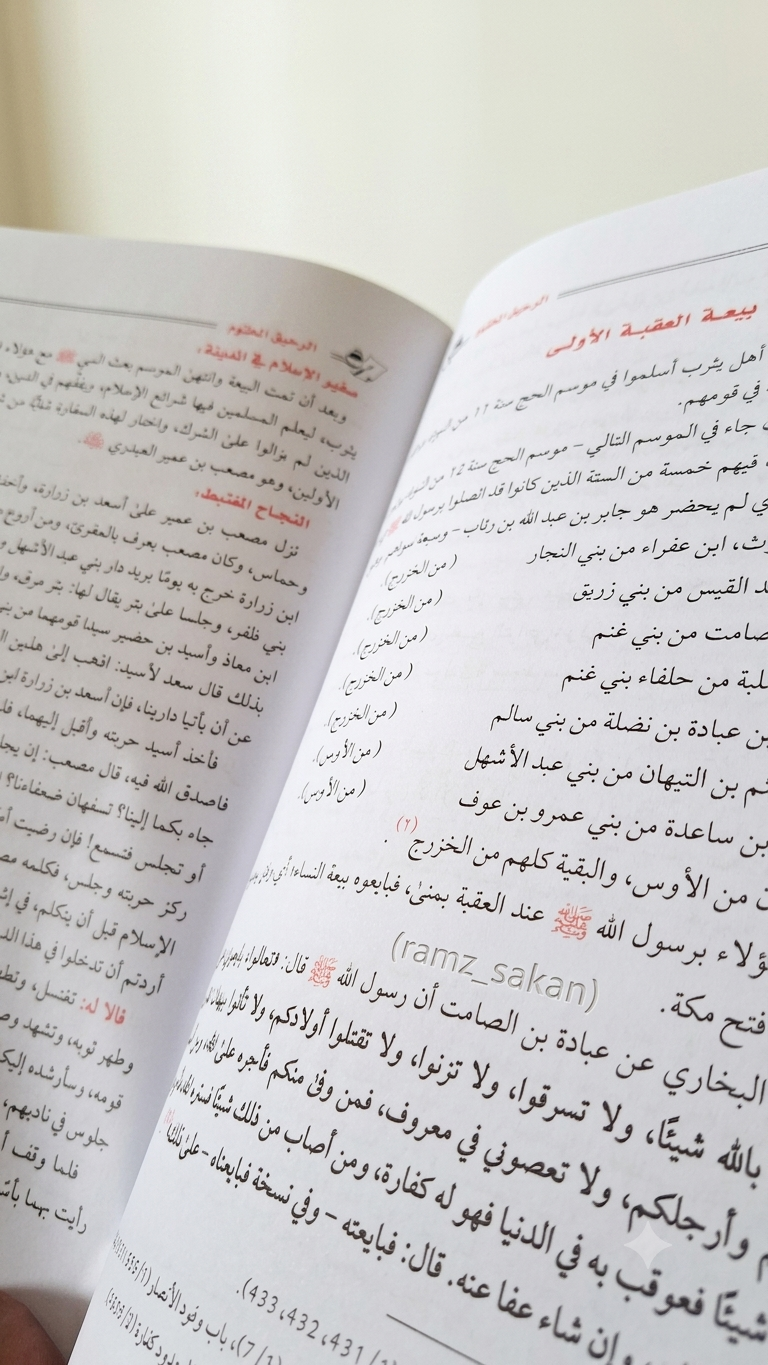 الرحيق المختوم
بيعة العقبة الأولى
أهل يثرب أسلموا في موسم الحج سنة 11 من
في قومهم.
جاء في الموسم التالي - موسم الحج سنة 12 من
فيهم خمسة من الستة الذين كانوا قد اتصلوا برسول الله ﷺ
ي لم يحضر هو جابر بن عبد الله بن رئاب - وسبعة سواهم،
ث، ابن عفراء من بني النجار (من الخزرج).
د القيس من بني زريق (من الخزرج).
صامت من بني غنم (من الخزرج).
لبة من حلفاء بني غنم (من الخزرج).
بن عبادة بن نضلة من بني سالم (من الخزرج).
ثم بن التيهان من بني عبد الأشهل (من الأوس).
بن ساعدة من بني عمرو بن عوف (من الأوس).
ن من الأوس، والبقية كلهم من الخزرج (٢).
ؤلاء برسول الله ﷺ عند العقبة بمنى، فبايعوه بيعة النساء؛ أي
فتح مكة.
(ramz_sakan)
البخاري عن عبادة بن الصامت أن رسول الله ﷺ قال: «تعالوا
بالله شيئًا، ولا تسرقوا، ولا تزنوا، ولا تقتلوا أولادكم، ولا تأتوا
وأرجلكم، ولا تعصوني في معروف، فمن وفى منكم فأجره على الله،
شيئًا فعوقب به في الدنيا فهو له كفارة، ومن أصاب من ذلك شيئًا فستره الله
وإن شاء عفا عنه. قال: فبايعته - وفي نسخة فبايعناه - على ذلك
431، 432، 433).
(1/ 7)، باب وفود الأنصار
الرحيق المختوم
سفير الإسلام في المدينة:
وبعد أن تمت البيعة وانتهى الموسم بعث النبي ﷺ مع هؤلاء
يثرب، ليعلم المسلمين فيها شرائع الإسلام، ويفقههم في الدين،
الذين لم يزالوا على الشرك، واختار لهذه السفارة شابًّا من
الأولين، وهو مصعب بن عمير العبدري
النجاح المغتبط:
نزل مصعب بن عمير على أسعد بن زرارة، وأخذا
وحماس، وكان مصعب يعرف بالمقرئ، ومن أروع
ابن زرارة خرج به يومًا يريد دار بني عبد الأشهل
بني ظفر، وجلسا على بئر يقال لها: بئر مرق،
ابن معاذ وأسيد بن حضير سيدا قومهما من بني
بذلك قال سعد لأسيد: اذهب إلى هذين
عن أن يأتيا دارينا، فإن أسعد بن زرارة ابن
فأخذ أسيد حربته وأقبل إليهما،
فاصدق الله فيه، قال مصعب: إن يجلس
جاء بكما إلينا؟ تسفهان ضعفاءنا؟
أو تجلس فتسمع! فإن رضيت
ركز حربته وجلس، فكلمه
الإسلام قبل أن يتكلم، في
أردتم أن تدخلوا في هذا
قالا له: تغتسل، وتطهر
وطهر ثوبه، وتشهد
قومه، وسأرشده إليكما
جلوس في ناديهم،
فلما وقف
رأيت بهما